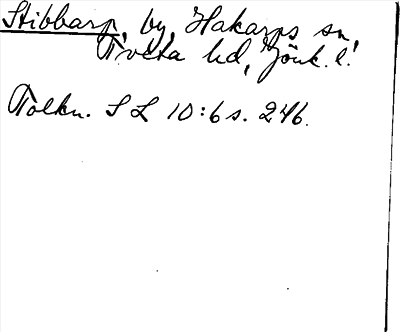 Stibbarp, by, Hakarps sn,
Tveta hd, Jönk. l.
Tolkn. S L 10:6 s. 246.